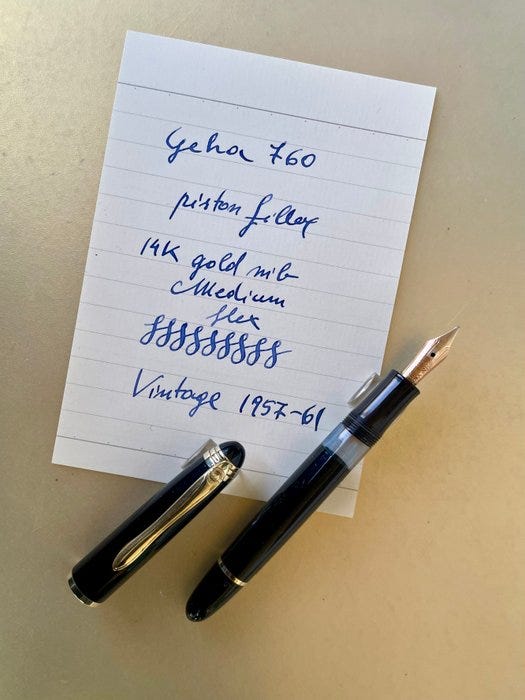 Geha 760
piston filler
14K gold nib
Medium
flex
Vintage 1957-61